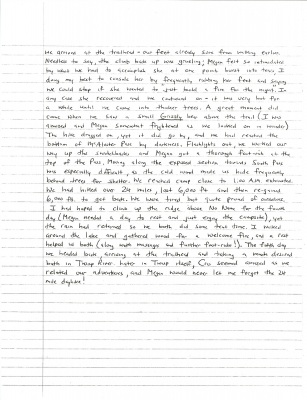 We arrived at the trailhead - our feet already sore from walking earlier.
Needless to say, the climb back up was grueling; Megan felt so intimidated
by what we had to accomplish she at one point burst into tears. I
doing my best to console her by frequently rubbing her feet and saying
we could stop if she wanted to just build a fire for the night. In
any case she recovered and we continued on - it was very hot for
a while until we came into thicker trees. A great moment did
come when we saw a small Grizzly bear above the trail (I was
amazed and Megan somewhat frightened as we looked on in wonder)
The hike dragged on, yet it did go by, and we had reached the
bottom of Pass by darkness. Flashlights out, we worked our
way up the switchbacks and Megan got a thorough foot-rub at the
top of the Pass. Moving along the exposed section towards South Pass
was especially difficult, as the cold wind made us hide frequently
behind trees for shelter. We reached camp close to exhausted.
We had hiked over 24 miles, lost 6,000 ft and then re-gained
6,000 ft. to get back. We were tired but quite proud of ourselves.
I had hoped to climb up the ridges above No Name for the fourth
day (Megan needed a day to rest and just enjoy the campsite), yet
the rain had returned so we both did some tent time. I walked
around the lake and gathered wood for a welcome fire, and a rest
helped us both (along with massage and further foot-rubs!). The fifth day
we headed back arriving at the trailhead and taking a much desired
bath in River. Later in itself, seemed amazed as we
related our adventures and Megan would never let me forget the 24
mile dayhike!